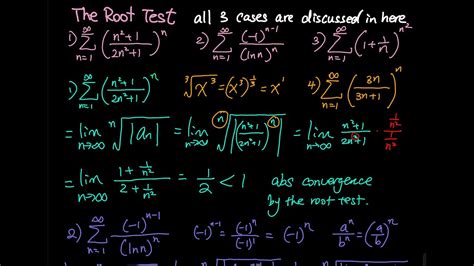 The Root Test all 3 cases are discussed in here
1) ∞∑n=1 ((n²+1)/(2n²+1))ⁿ 2) ∞∑n=1 (-1)ⁿ⁻¹/(ln n)ⁿ 3) ∞∑n=1 (1+1/n)^(n²)
1) ∞∑n=1 ((n²+1)/(2n²+1))ⁿ ³√x³ = (x³)^(1/3) = x¹ 4) ∞∑n=1 (3n/(3n+1))ⁿ
= lim n→∞ ⁿ√|an| = lim n→∞ ⁿ√|((n²+1)/(2n²+1))ⁿ| = lim n→∞ (n²+1)/(2n²+1) · (1/n²)/(1/n²)
= lim n→∞ (1+1/n²)/(2+1/n²) = 1/2 < 1 abs convergence
by the root test.
2) ∞∑n=1 (-1)ⁿ⁻¹/(ln n)ⁿ (-1)ⁿ⁻¹ = (-1)ⁿ/(-1)¹ = (-1)ⁿ aⁿ/bⁿ = (a/b)ⁿ